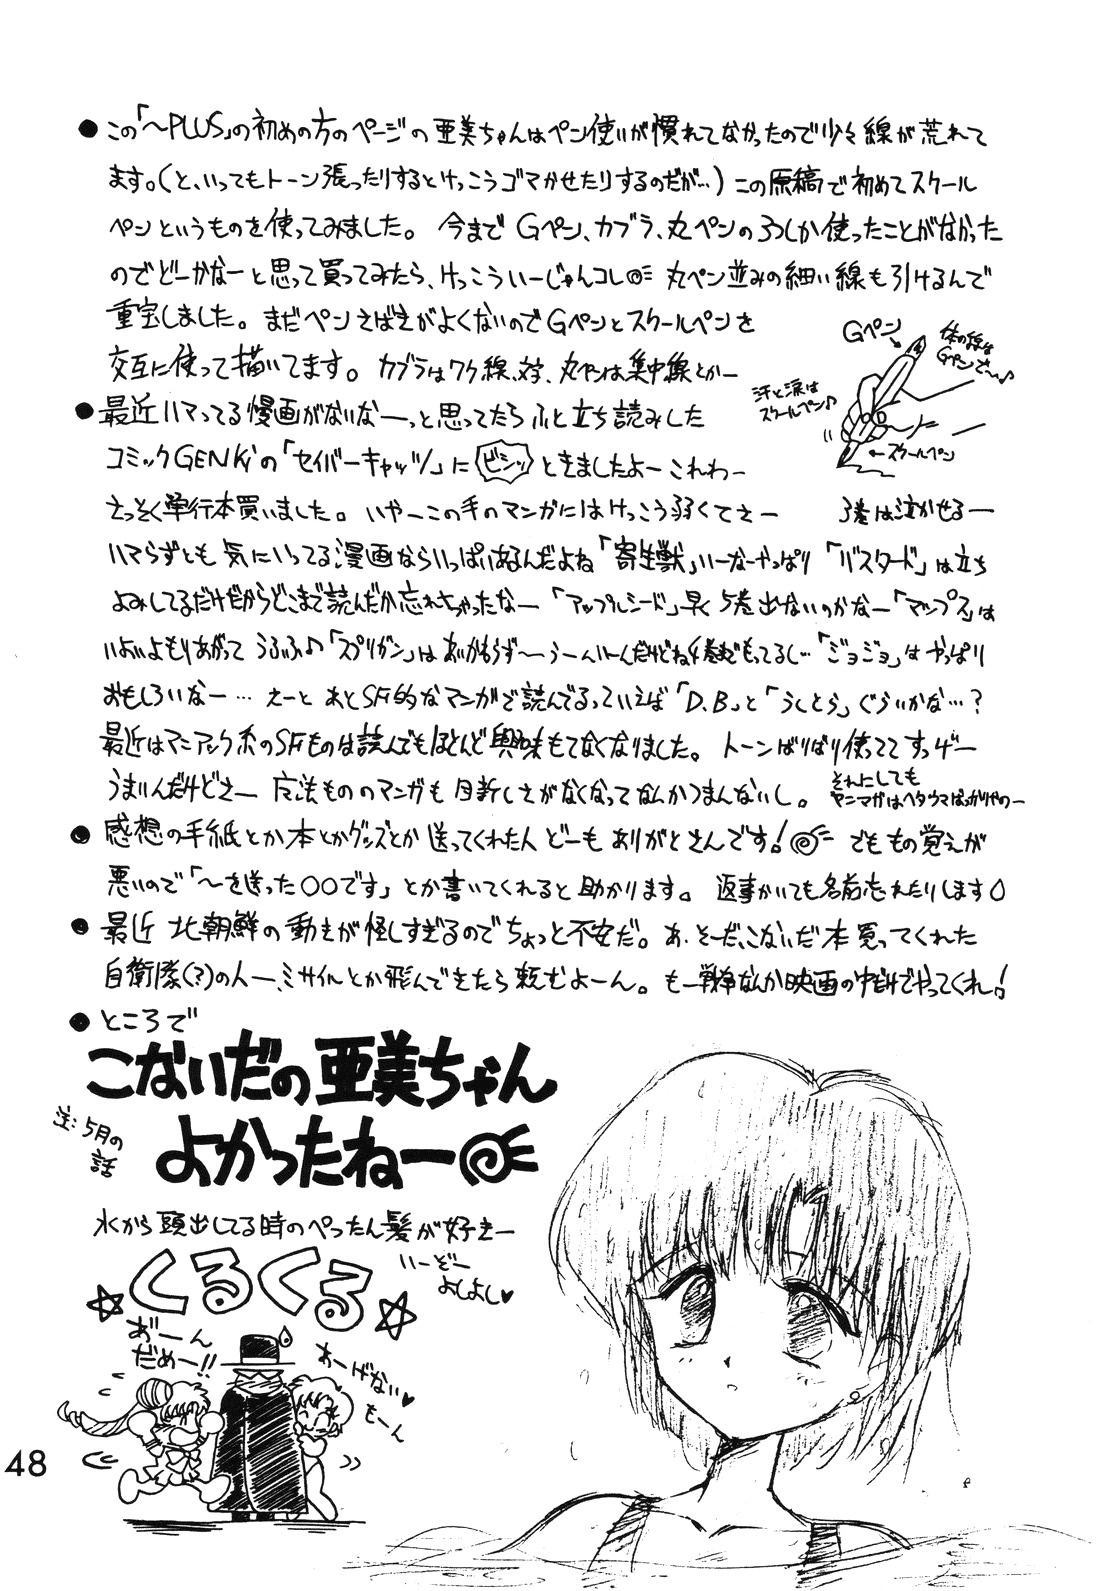 ●この「〜PLUS」の初めの方のページの亜美ちゃんはペン使いが慣れてなかったので少々線が荒れて
ます。(と、いってもトーン張ったりするとけっこうゴマかせたりするのだが…)この原稿で初めてスクール
ペンというものを使ってみました。今までGペン、カブラ、丸ペンの3つしか使ったことがなかった
のでどーかなーと思って買ってみたら、けっこういーじゃんコレ 丸ペン並みの細い線も引けるんで
重宝しました。まだペンさばきがよくないのでGペンとスクールペンを
交互に使って描いてます。カブラはワク線、丸ペンは集中線とかー
Gペン
体の線は
Gペンで〜♪
汗と涙は
スクールペン♪
←スクールペン
●最近ハマってる漫画がないなーっと思ってたらふと立ち読みした
コミックGENKiの「セイバーキャッツ」に ビシッ ときましたよーこれわー
さっそく単行本買いました。いやーこの手のマンガにはけっこう弱くてさー 3巻は泣かせるー
ハマらずとも気にいってる漫画ならいっぱいあるんだよね「寄生獣」いーなーやっぱり「バスタード」は立ち
よみしてるだけだからどこまで読んだか忘れちゃったなー「アップルシード」早く5巻出ないのかなー「マップス」は
いよいよもりあがってうふふ♪「スプリガン」はあいかもらず〜うーんいーんだけどね4巻までもってるし…「ジョジョ」はやっぱり
おもしろいなー…えーとあとSF的なマンガで読んでるっていえば「D.B」と「うしとら」ぐらいかな…?
最近はマニアック系のSFものは読んでもほとんど興味もてなくなりました。トーンばりばり使っててすっげー
うまいんだけどさー 魔法もののマンガも目新しさがなくなってなんかつまんないし。
それにしても
ヤンマガはヘタウマばっかりやのー
●感想の手紙とか本とかグッズとか送ってくれた人どーもありがとさんです! でももの覚えが
悪いので「〜を送った○○です」とか書いてくれると助かります。返事かいても名前忘れたりします
●最近北朝鮮の動きが怪しすぎるのでちょっと不安だ。あ、そーだ、こないだ本買ってくれた
自衛隊(?)の人ー、ミサイルとか飛んできたら頼むよーん。もー戦争なんか映画の中だけでやってくれ!
●ところで
こないだの亜美ちゃん
よかったねー
注:5月の
話
水から頭出してる時のぺったん髪が好きー
いーぞー
よしよし♥
☆くるくる☆
あ゛ーん
だめー!!
あーげない♥
もーん
48